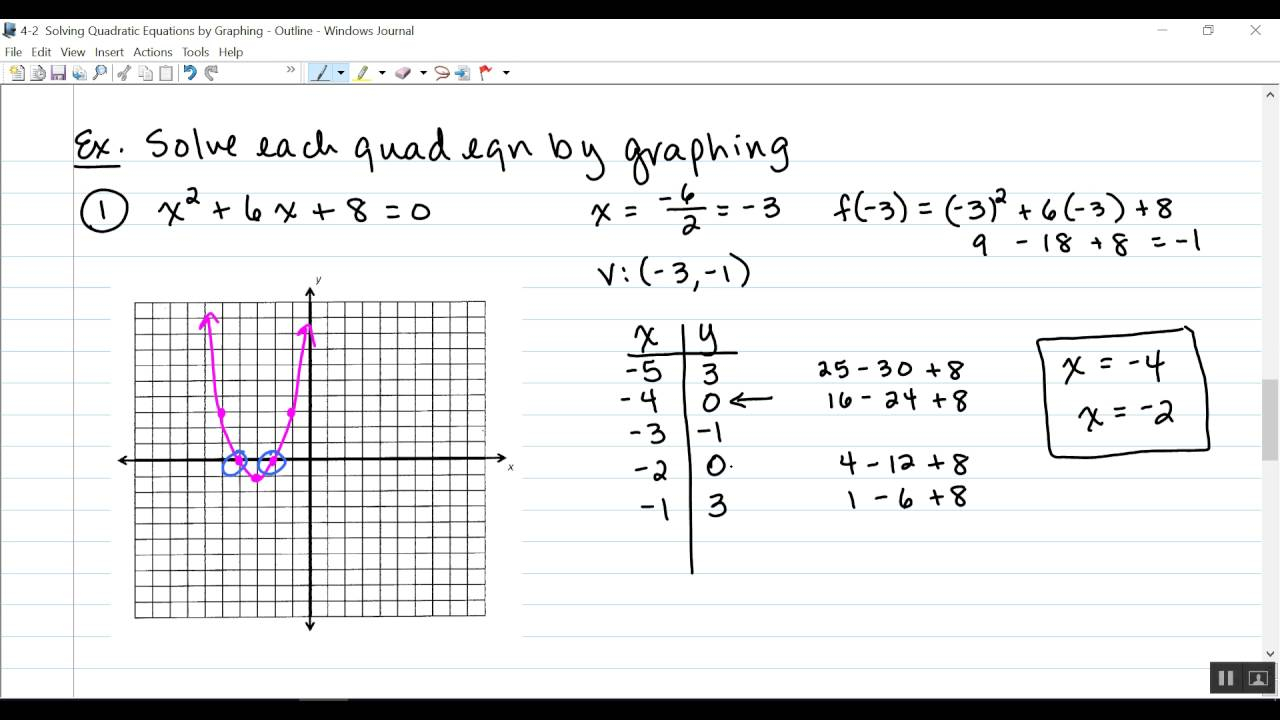 4-2 Solving Quadratic Equations by Graphing - Outline - Windows Journal
File Edit View Insert Actions Tools Help
Ex. Solve each quad eqn by graphing
1 x² + 6x + 8 = 0
x = -6/2 = -3
f(-3) = (-3)² + 6(-3) + 8
9 - 18 + 8 = -1
V: (-3, -1)
y
x
x | y
-5 | 3 25 - 30 + 8
-4 | 0 ← 16 - 24 + 8
-3 | -1
-2 | 0 4 - 12 + 8
-1 | 3 1 - 6 + 8
x = -4
x = -2